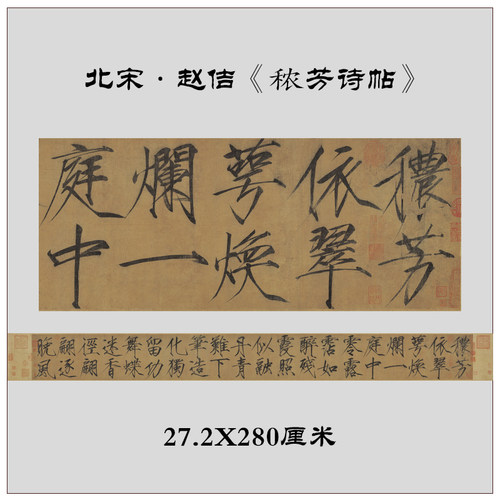 北宋·赵佶《秾芳诗帖》
穠芳
依翠
萼煥
爛一
庭中
穠芳
依翠
萼煥
爛一
庭中
零露
霑如
醉殘
霞照
似融
丹青
難下
筆造
化獨
留功
舞蝶
迷香
徑翩
翩逐
晚風
27.2X280厘米